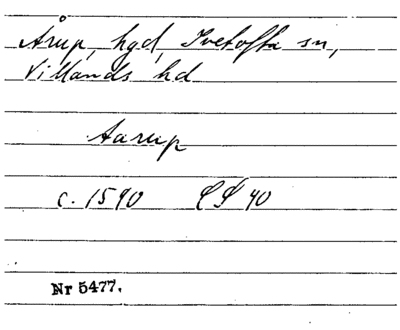 Årup, hgd, Ivetofta sn,
Villands hd
Aarup
c. 1590 LS 40
Nr 5477.